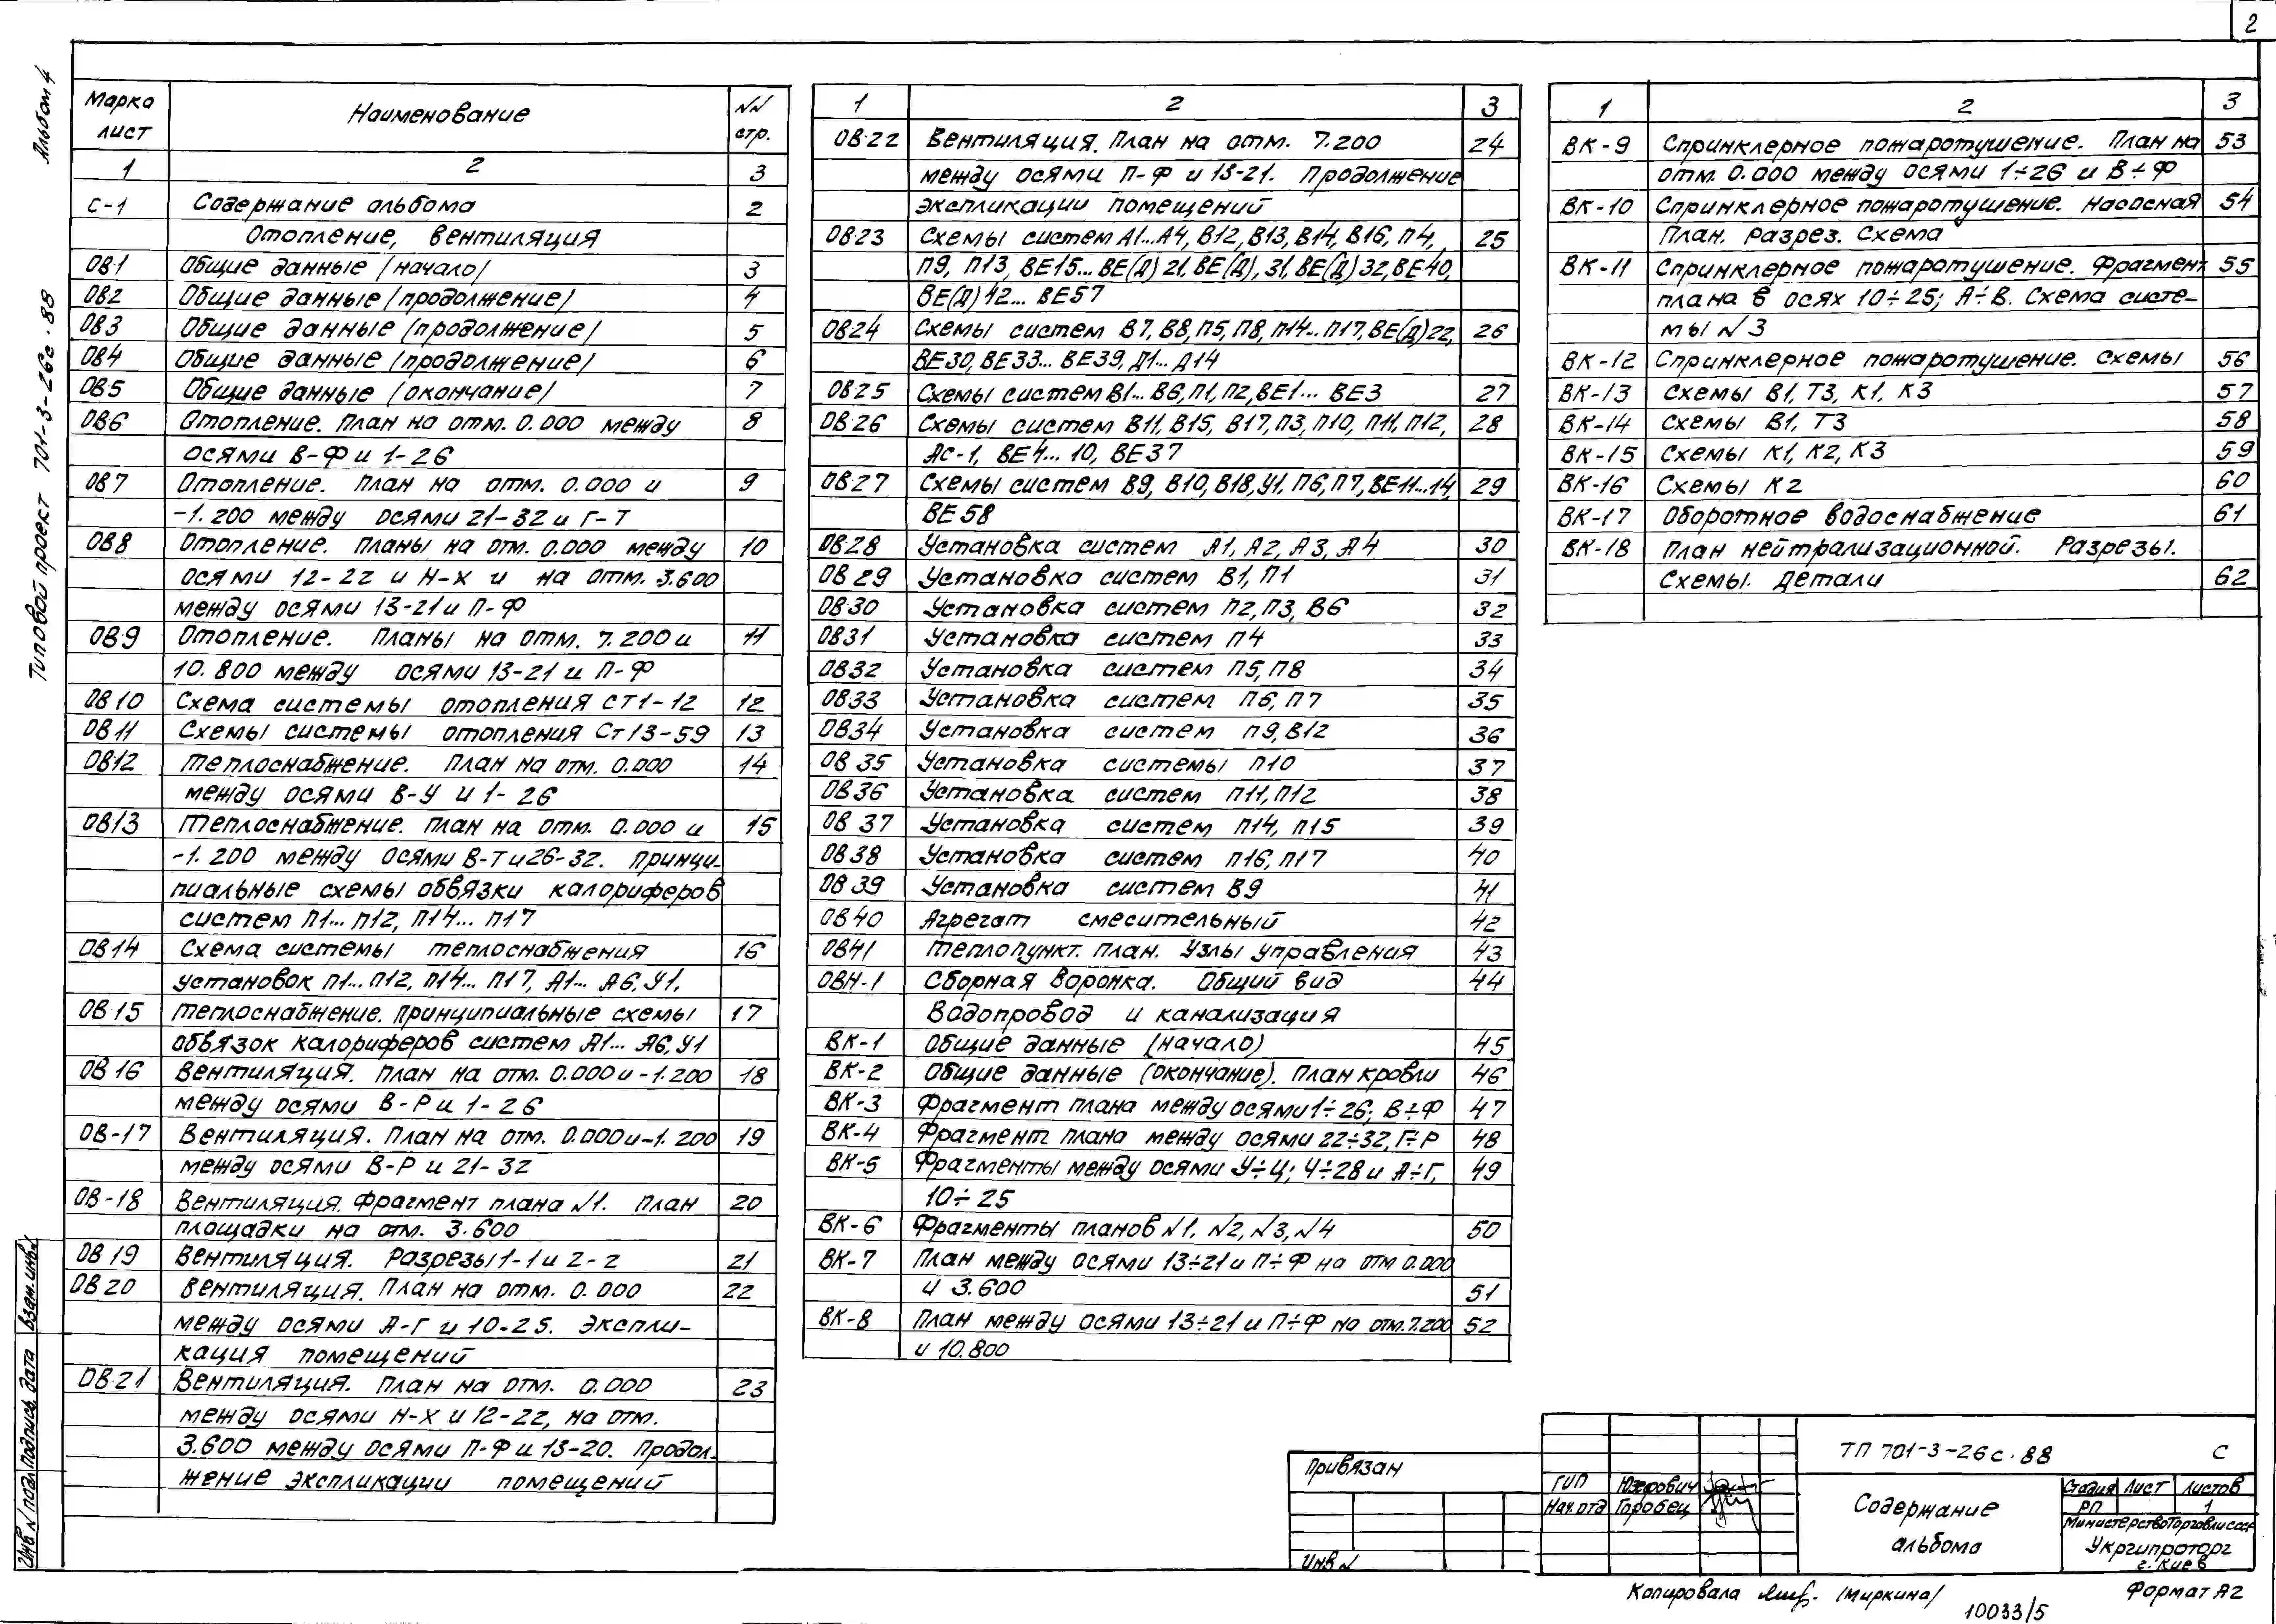 2
Альбом 4
Типовой проект 701-3-26с.88
Марка лист Наименование NN стр.
1 2 3
С-1 Содержание альбома 2
Отопление, вентиляция
ОВ-1 Общие данные /начало/ 3
ОВ2 Общие данные /продолжение/ 4
ОВ3 Общие данные /продолжение/ 5
ОВ4 Общие данные /продолжение/ 6
ОВ5 Общие данные /окончание/ 7
ОВ6 Отопление. План на отм. 0.000 между 8
осями В-Ф и 1-26
ОВ7 Отопление. План на отм. 0.000 и 9
-1.200 между осями 21-32 и Г-Т
ОВ8 Отопление. Планы на отм. 0.000 между 10
осями 12-22 и Н-Х и на отм. 3.600
между осями 13-21 и П-Ф
ОВ9 Отопление. Планы на отм. 7.200 и 11
10.800 между осями 13-21 и П-Ф
ОВ10 Схема системы отопления Ст1-12 12
ОВ11 Схемы системы отопления Ст13-59 13
ОВ12 Теплоснабжение. План на отм. 0.000 14
между осями В-У и 1-26
ОВ13 Теплоснабжение. План на отм. 0.000 и 15
-1.200 между осями В-Т и 26-32. Принци-
пиальные схемы обвязки калориферов
систем П1... П12, П14... П17
ОВ14 Схема системы теплоснабжения 16
установок П1... П12, П14... П17, А1... А6, У1.
ОВ15 Теплоснабжение. Принципиальные схемы 17
обвязок калориферов систем А1... А6, У1
ОВ16 Вентиляция. План на отм. 0.000 и -1.200 18
между осями В-Р и 1-26
ОВ-17 Вентиляция. План на отм. 0.000 и -1.200 19
между осями В-Р и 21-32
ОВ-18 Вентиляция. Фрагмент плана N1. План 20
площадки на отм. 3.600
ОВ19 Вентиляция. Разрезы 1-1 и 2-2 21
ОВ20 Вентиляция. План на отм. 0.000 22
между осями А-Г и 10-25. Экспли-
кация помещений
ОВ-21 Вентиляция. План на отм. 0.000 23
между осями Н-Х и 12-22, на отм.
3.600 между осями П-Ф и 13-20. Продол-
жение экспликации помещений
1 2 3
ОВ-22 Вентиляция. План на отм. 7.200 24
между осями П-Ф и 13-21. Продолжение
экспликации помещений
ОВ23 Схемы систем А1...А4, В12, В13, В14, В16, П4, 25
П9, П13, ВЕ15... ВЕ(Д) 21, ВЕ(Д), 31, ВЕ(Д) 32, ВЕ40,
ВЕ(Д) 42... ВЕ57
ОВ24 Схемы систем В7, В8, П5, П8, П14... П17, ВЕ(Д)22, 26
ВЕ30, ВЕ33... ВЕ39, Д1... Д14
ОВ25 Схемы систем В1... В6, П1, П2, ВЕ1... ВЕ3 27
ОВ-26 Схемы систем В11, В15, В17, П3, П10, П11, П12, 28
АС-1, ВЕ4... 10, ВЕ37
ОВ-27 Схемы систем В9, В10, В18, У1, П6, П7, ВЕ11...14, 29
ВЕ58
ОВ28 Установка систем А1, А2, А3, А4 30
ОВ29 Установка систем В1, П1 31
ОВ30 Установка систем П2, П3, В6 32
ОВ31 Установка систем П4 33
ОВ32 Установка систем П5, П8 34
ОВ33 Установка систем П6, П7 35
ОВ34 Установка систем П9, В12 36
ОВ35 Установка системы П10 37
ОВ36 Установка систем П11, П12 38
ОВ37 Установка систем П14, П15 39
ОВ38 Установка систем П16, П17 40
ОВ39 Установка систем В9 41
ОВ40 Агрегат смесительный 42
ОВ41 Теплопункт. План. Узлы управления 43
ОВН-1 Сборная воронка. Общий вид 44
Водопровод и канализация
ВК-1 Общие данные (начало) 45
ВК-2 Общие данные (окончание). План кровли 46
ВК-3 Фрагмент плана между осями 1÷26; В÷Ф 47
ВК-4 Фрагмент плана между осями 22÷32, Г÷Р 48
ВК-5 Фрагменты между осями У÷Ц; 4÷28 и А÷Г, 49
10÷25
ВК-6 Фрагменты планов N1, N2, N3, N4 50
ВК-7 План между осями 13÷21 и П÷Ф на отм 0.000
и 3.600 51
ВК-8 План между осями 13÷21 и П÷Ф на отм. 7.200 52
и 10.800
1 2 3
ВК-9 Спринклерное пожаротушение. План на 53
отм. 0.000 между осями 1÷26 и В÷Ф
ВК-10 Спринклерное пожаротушение. Насосная 54
План. Разрез. Схема
ВК-11 Спринклерное пожаротушение. Фрагмент 55
плана в осях 10÷25; А÷В. Схема систе-
мы N3
ВК-12 Спринклерное пожаротушение. Схемы 56
ВК-13 Схемы В1, Т3, К1, К3 57
ВК-14 Схемы В1, Т3 58
ВК-15 Схемы К1, К2, К3 59
ВК-16 Схемы К2 60
ВК-17 Оборотное водоснабжение 61
ВК-18 План нейтрализационной. Разрезы.
Схемы. Детали 62
Инв N подл Подпись дата Взам. инв N
Привязан
Инв N
ТП 701-3-26с.88 С
ГИП Юзерович
Нач. отд Горобец
Содержание альбома
Стадия Лист Листов
РП 1
Министерство торговли СССР
Укргипроторг
г. Киев
Копировала /Миркина/ Формат А2
10033/5